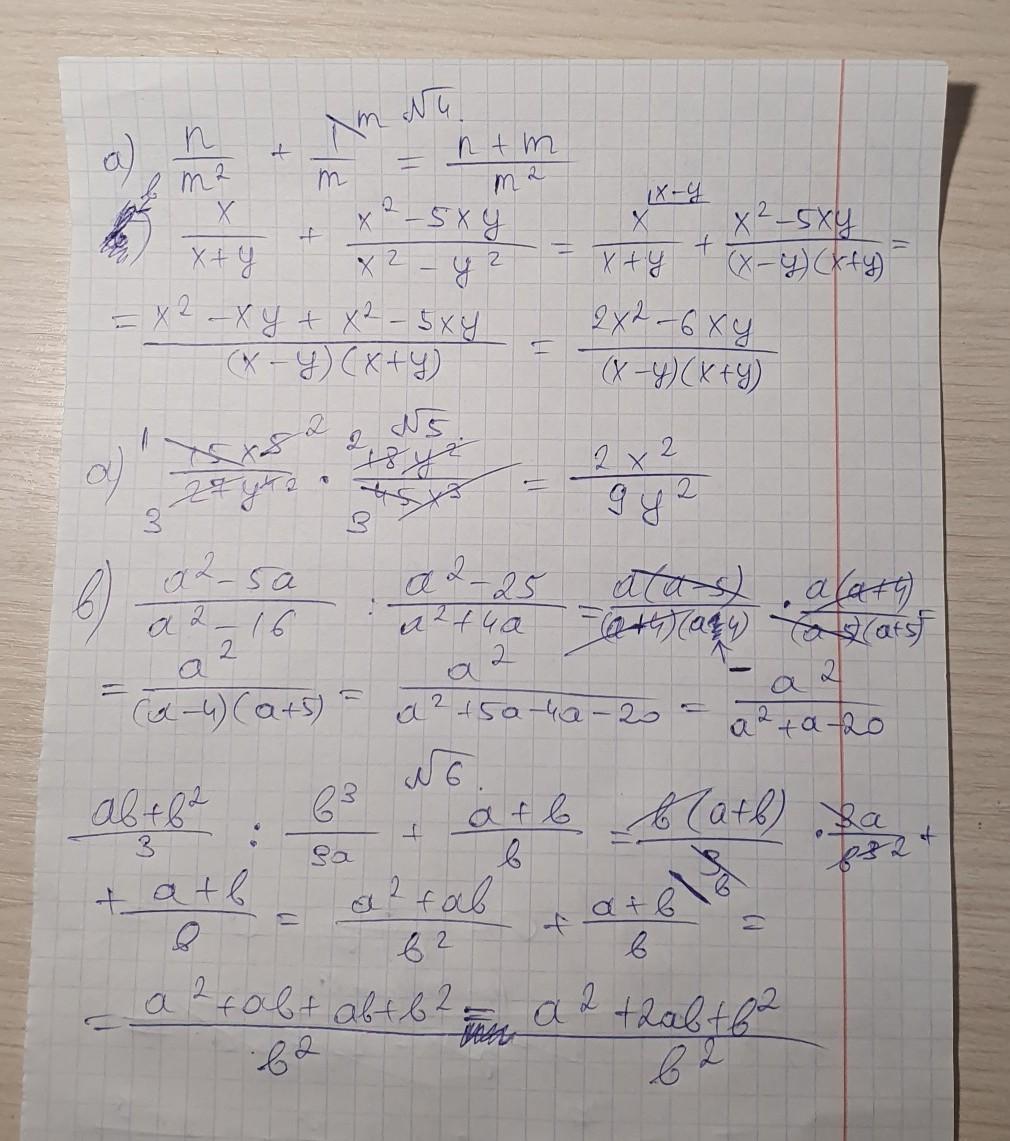 №4.
а) n/m² + 1\m/m = (n + m)/m²
в) x/(x+y) + (x² - 5xy)/(x² - y²) = x\x-y/(x+y) + (x² - 5xy)/((x-y)(x+y)) =
= (x² - xy + x² - 5xy)/((x-y)(x+y)) = (2x² - 6xy)/((x-y)(x+y))
№5.
а) 15x⁵/27y⁴ · 18y²/45x³ = 2x²/9y²
в) (a² - 5a)/(a² - 16) : (a² - 25)/(a² + 4a) = a(a-5)/((a+4)(a-4)) · a(a+4)/((a-5)(a+5)) =
= a²/((a-4)(a+5)) = a²/(a² + 5a - 4a - 20) = a²/(a² + a - 20)
№6.
(ab + b²)/3 : b³/3a + (a + b)/b = b(a+b)/3 · 3a/b³ +
+ (a + b)/b = (a² + ab)/b² + (a + b)\b/b =
= (a² + ab + ab + b²)/b² = (a² + 2ab + b²)/b²